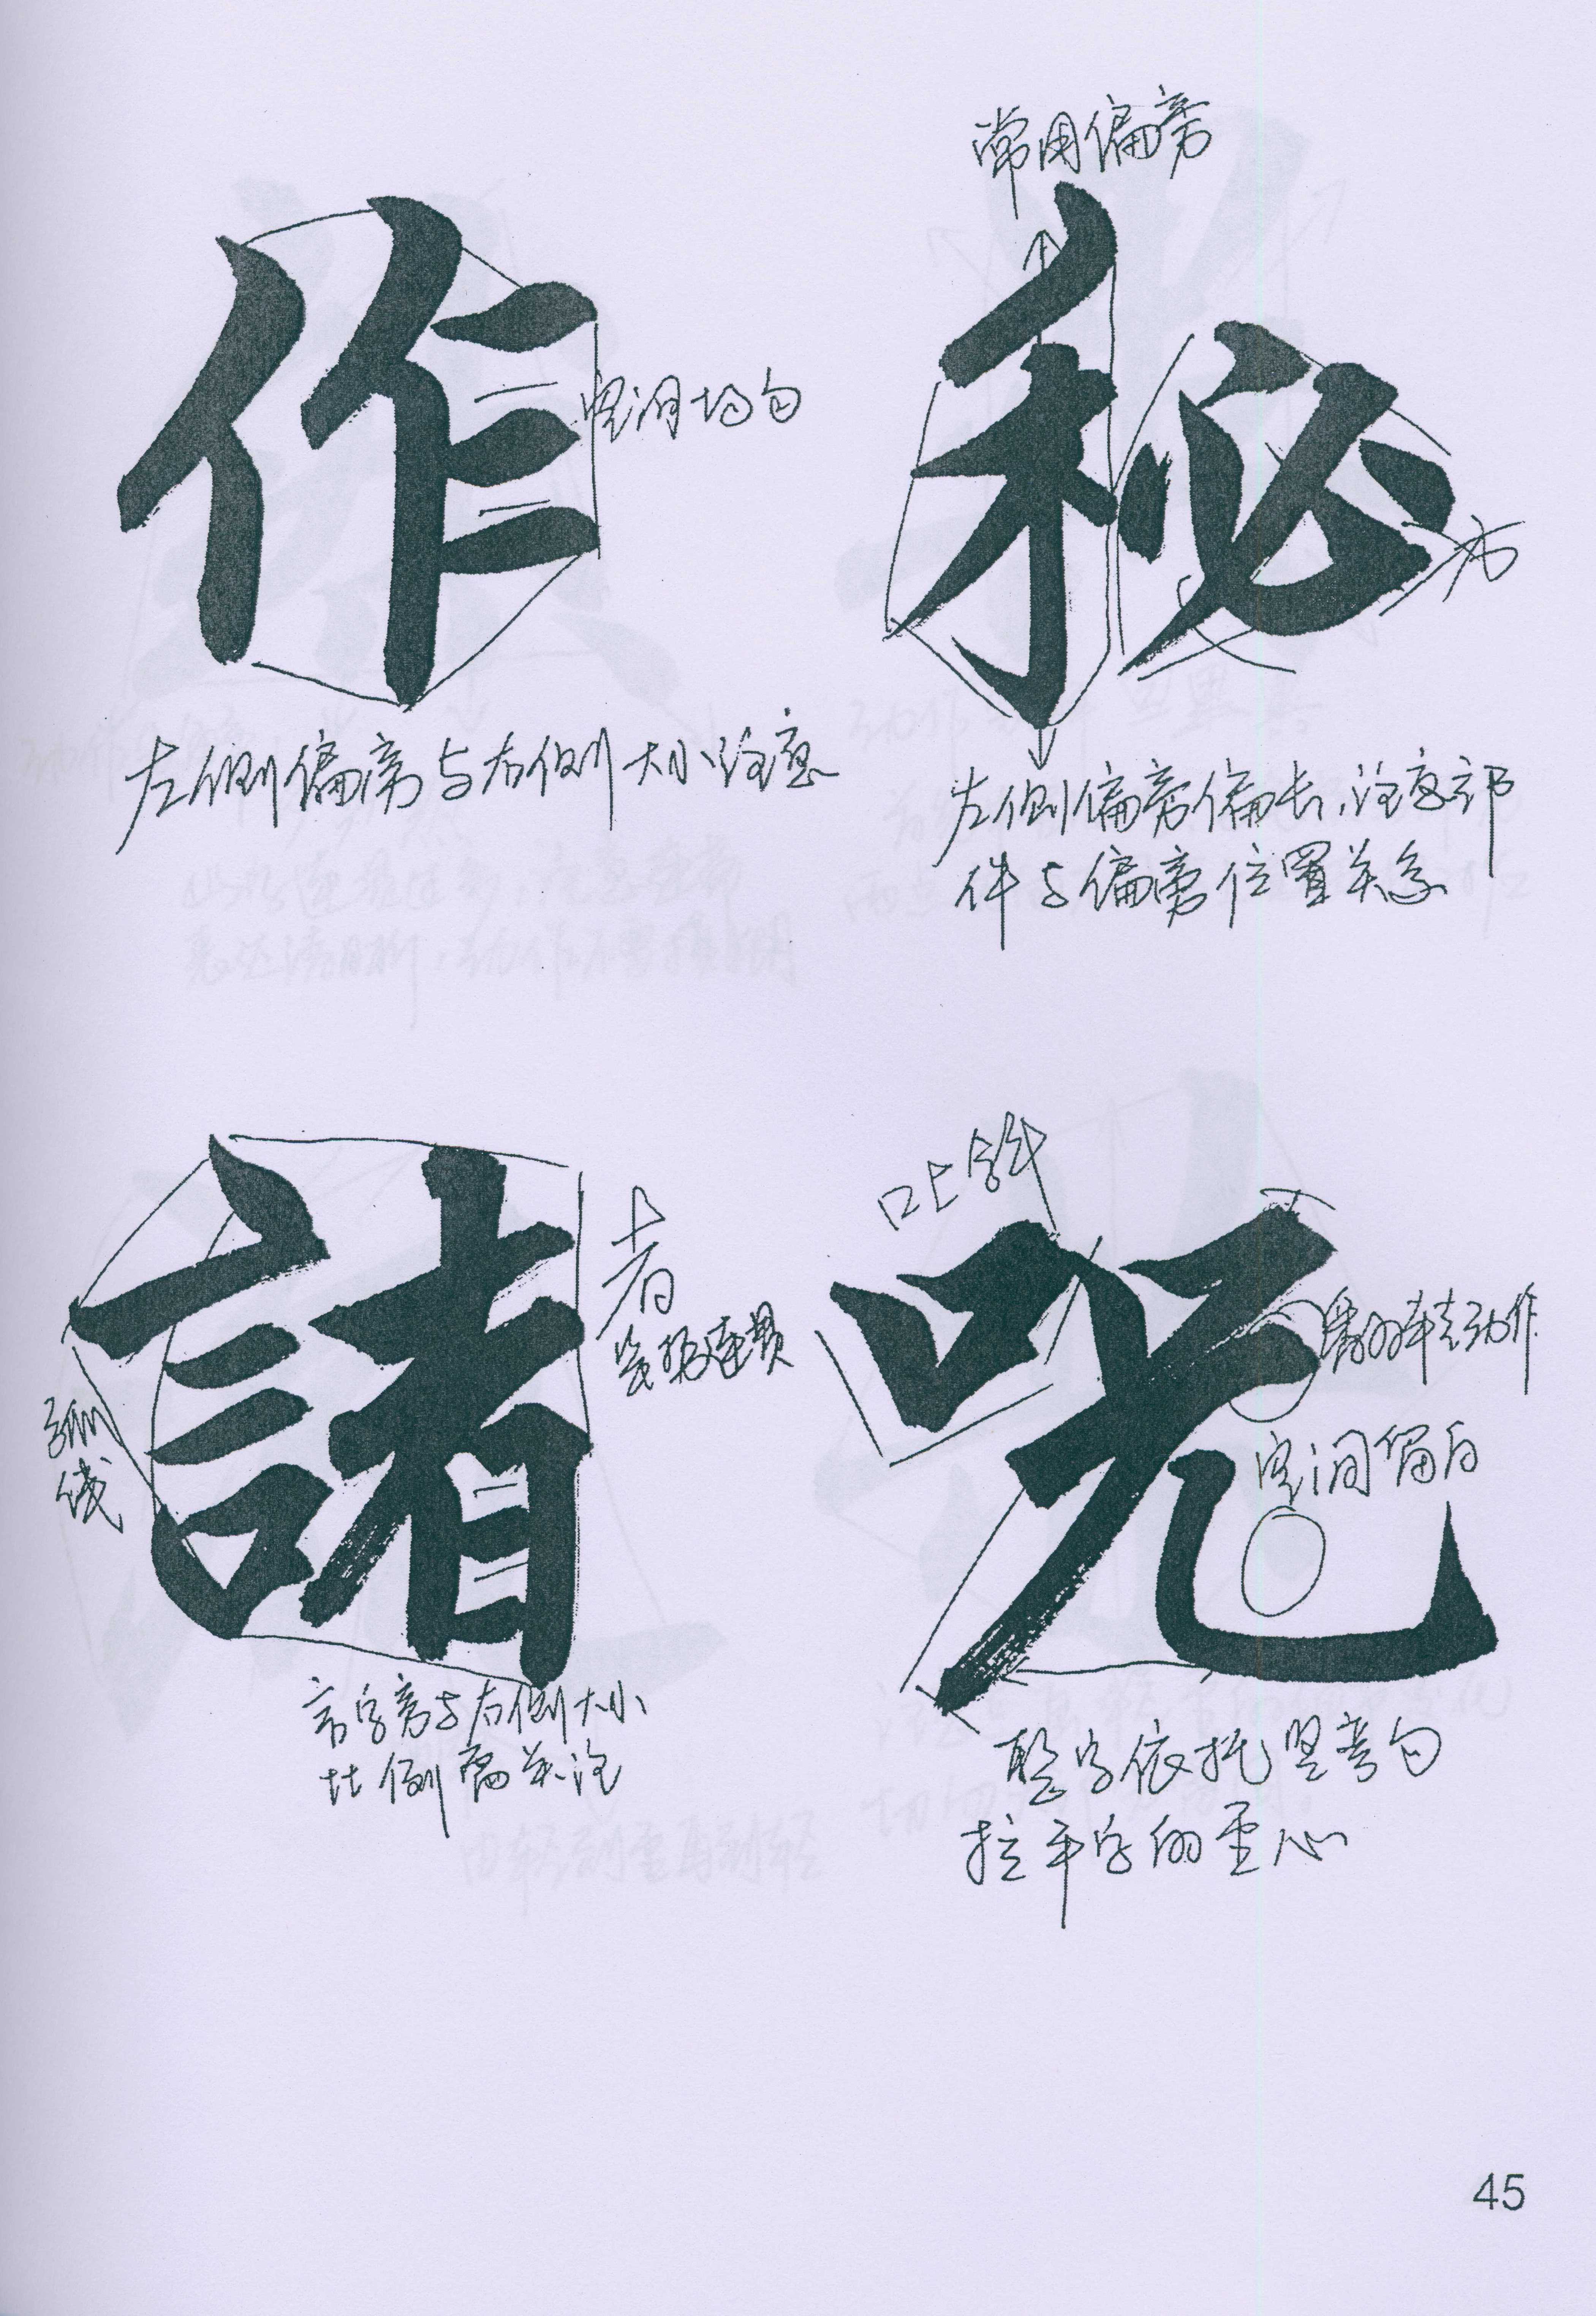 常用偏旁
作
空间均匀
左侧偏旁与右侧大小注意
秘
左侧偏旁偏长，注意部
件与偏旁位置关系
諸
者
笔势连贯
弧
线
言字旁与右侧大小
比例需关注
口上斜
咒
空间留白
整字依托竖弯勾
拉平字的重心
45